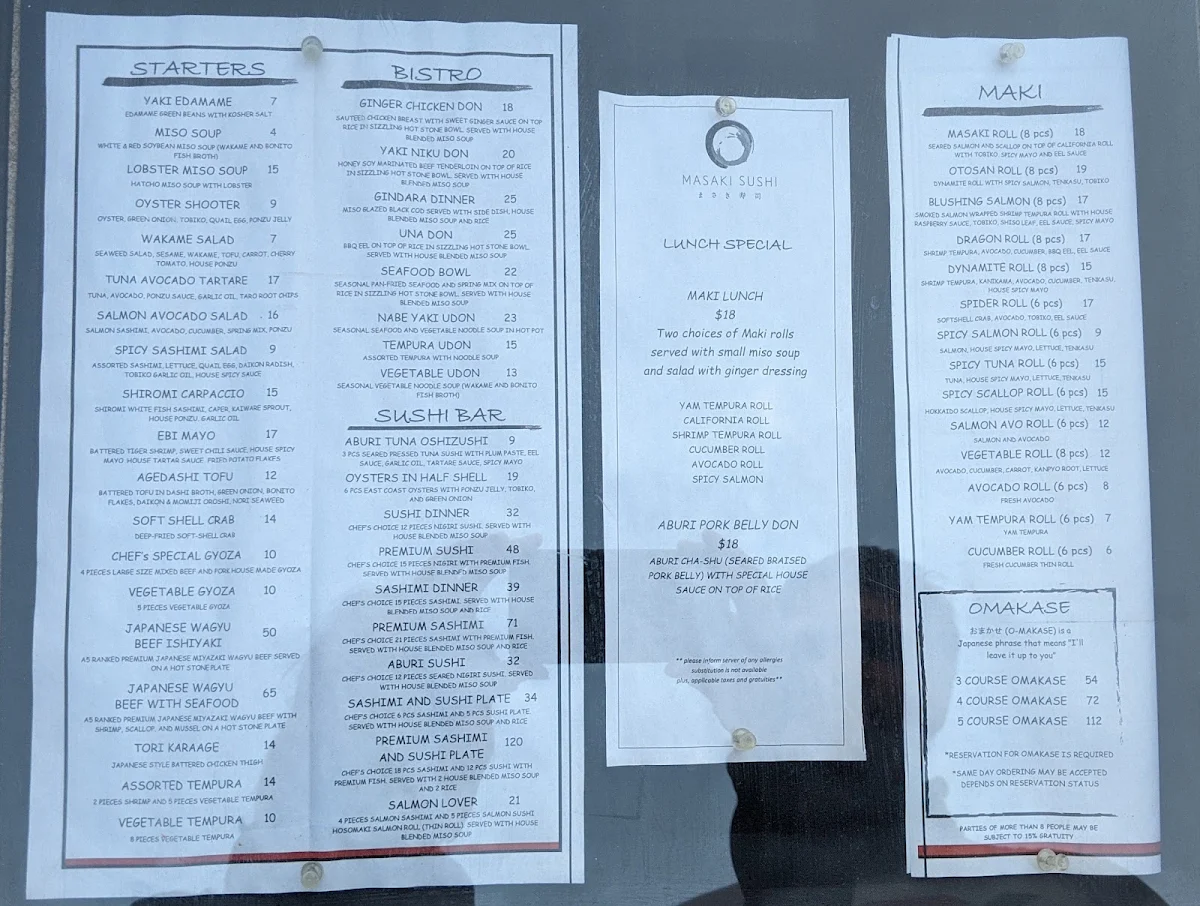 STARTERS
YAKI EDAMAME 7
EDAMAME GREEN BEANS WITH KOSHER SALT
MISO SOUP 4
WHITE & RED SOYBEAN MISO SOUP (WAKAME AND BONITO
FISH BROTH)
LOBSTER MISO SOUP 15
HATCHO MISO SOUP WITH LOBSTER
OYSTER SHOOTER 9
OYSTER, GREEN ONION, TOBIKO, QUAIL EGG, PONZU JELLY
WAKAME SALAD 7
SEAWEED SALAD, SESAME, WAKAME, TOFU, CARROT, CHERRY
TOMATO, HOUSE PONZU
TUNA AVOCADO TARTARE 17
TUNA, AVOCADO, PONZU SAUCE, GARLIC OIL, TARO ROOT CHIPS
SALMON AVOCADO SALAD 16
SALMON SASHIMI, AVOCADO, CUCUMBER, SPRING MIX, PONZU
SPICY SASHIMI SALAD 9
ASSORTED SASHIMI, LETTUCE, QUAIL EGG, DAIKON RADISH,
TOBIKO GARLIC OIL, HOUSE SPICY SAUCE
SHIROMI CARPACCIO 15
SHIROMI WHITE FISH SASHIMI, CAPER, KAIWARE SPROUT,
HOUSE PONZU, GARLIC OIL
EBI MAYO 17
BATTERED TIGER SHRIMP, SWEET CHILI SAUCE, HOUSE SPICY
MAYO, HOUSE TARTAR SAUCE, FRIED POTATO FLAKES
AGEDASHI TOFU 12
BATTERED TOFU IN DASHI BROTH, GREEN ONION, BONITO
FLAKES, DAIKON & MOMIJI OROSHI, NORI SEAWEED
SOFT SHELL CRAB 14
DEEP-FRIED SOFT-SHELL CRAB
CHEF's SPECIAL GYOZA 10
4 PIECES LARGE SIZE MIXED BEEF AND PORK HOUSE MADE GYOZA
VEGETABLE GYOZA 10
5 PIECES VEGETABLE GYOZA
JAPANESE WAGYU
BEEF ISHIYAKI 50
A5 RANKED PREMIUM JAPANESE MIYAZAKI WAGYU BEEF SERVED
ON A HOT STONE PLATE
JAPANESE WAGYU
BEEF WITH SEAFOOD 65
A5 RANKED PREMIUM JAPANESE MIYAZAKI WAGYU BEEF WITH
SHRIMP, SCALLOP, AND MUSSEL ON A HOT STONE PLATE
TORI KARAAGE 14
JAPANESE STYLE BATTERED CHICKEN THIGH
ASSORTED TEMPURA 14
2 PIECES SHRIMP AND 5 PIECES VEGETABLE TEMPURA
VEGETABLE TEMPURA 10
8 PIECES VEGETABLE TEMPURA
BISTRO
GINGER CHICKEN DON 18
SAUTEED CHICKEN BREAST WITH SWEET GINGER SAUCE ON TOP
RICE IN SIZZLING HOT STONE BOWL. SERVED WITH HOUSE
BLENDED MISO SOUP
YAKI NIKU DON 20
HONEY SOY MARINATED BEEF TENDERLOIN ON TOP OF RICE
IN SIZZLING HOT STONE BOWL. SERVED WITH HOUSE
BLENDED MISO SOUP
GINDARA DINNER 25
MISO GLAZED BLACK COD SERVED WITH SIDE DISH, HOUSE
BLENDED MISO SOUP AND RICE
UNA DON 25
BBQ EEL ON TOP OF RICE IN SIZZLING HOT STONE BOWL.
SERVED WITH HOUSE BLENDED MISO SOUP
SEAFOOD BOWL 22
SEASONAL PAN-FRIED SEAFOOD AND SPRING MIX ON TOP OF
RICE IN SIZZLING HOT STONE BOWL. SERVED WITH HOUSE
BLENDED MISO SOUP
NABE YAKI UDON 23
SEASONAL SEAFOOD AND VEGETABLE NOODLE SOUP IN HOT POT
TEMPURA UDON 15
ASSORTED TEMPURA WITH NOODLE SOUP
VEGETABLE UDON 13
SEASONAL VEGETABLE NOODLE SOUP (WAKAME AND BONITO
FISH BROTH)
SUSHI BAR
ABURI TUNA OSHIZUSHI 9
3 PCS SEARED PRESSED TUNA SUSHI WITH PLUM PASTE, EEL
SAUCE, GARLIC OIL, TARTARE SAUCE, SPICY MAYO
OYSTERS IN HALF SHELL 19
6 PCS EAST COAST OYSTERS WITH PONZU JELLY, TOBIKO,
AND GREEN ONION
SUSHI DINNER 32
CHEF'S CHOICE 12 PIECES NIGIRI SUSHI, SERVED WITH
HOUSE BLENDED MISO SOUP
PREMIUM SUSHI 48
CHEF'S CHOICE 15 PIECES NIGIRI WITH PREMIUM FISH.
SERVED WITH HOUSE BLENDED MISO SOUP
SASHIMI DINNER 39
CHEF'S CHOICE 15 PIECES SASHIMI, SERVED WITH HOUSE
BLENDED MISO SOUP AND RICE
PREMIUM SASHIMI 71
CHEF'S CHOICE 21 PIECES SASHIMI WITH PREMIUM FISH.
SERVED WITH HOUSE BLENDED MISO SOUP AND RICE
ABURI SUSHI 32
CHEF'S CHOICE 12 PIECES SEARED NIGIRI SUSHI, SERVED
WITH HOUSE BLENDED MISO SOUP
SASHIMI AND SUSHI PLATE 34
CHEF'S CHOICE 6 PCS SASHIMI AND 5 PCS SUSHI PLATE.
SERVED WITH HOUSE BLENDED MISO SOUP AND RICE
PREMIUM SASHIMI
AND SUSHI PLATE 120
CHEF'S CHOICE 18 PCS SASHIMI AND 12 PCS SUSHI WITH
PREMIUM FISH, SERVED WITH 2 HOUSE BLENDED MISO SOUP
AND 2 RICE
SALMON LOVER 21
4 PIECES SALMON SASHIMI AND 5 PIECES SALMON SUSHI
HOSOMAKI SALMON ROLL (THIN ROLL). SERVED WITH HOUSE
BLENDED MISO SOUP
MASAKI SUSHI
まさき寿司
LUNCH SPECIAL
MAKI LUNCH
$18
Two choices of Maki rolls
served with small miso soup
and salad with ginger dressing
YAM TEMPURA ROLL
CALIFORNIA ROLL
SHRIMP TEMPURA ROLL
CUCUMBER ROLL
AVOCADO ROLL
SPICY SALMON
ABURI PORK BELLY DON
$18
ABURI CHA-SHU (SEARED BRAISED
PORK BELLY) WITH SPECIAL HOUSE
SAUCE ON TOP OF RICE
** please inform server of any allergies
substitution is not available
plus, applicable taxes and gratuities**
MAKI
MASAKI ROLL (8 pcs) 18
SEARED SALMON AND SCALLOP ON TOP OF CALIFORNIA ROLL
WITH TOBIKO, SPICY MAYO AND EEL SAUCE
OTOSAN ROLL (8 pcs) 19
DYNAMITE ROLL WITH SPICY SALMON, TENKASU, TOBIKO
BLUSHING SALMON (8 pcs) 17
SMOKED SALMON WRAPPED SHRIMP TEMPURA ROLL WITH HOUSE
RASPBERRY SAUCE, TOBIKO, SHISO LEAF, EEL SAUCE, SPICY MAYO
DRAGON ROLL (8 pcs) 17
SHRIMP TEMPURA, AVOCADO, CUCUMBER, BBQ EEL, EEL SAUCE
DYNAMITE ROLL (8 pcs) 15
SHRIMP TEMPURA, KANIKAMA, AVOCADO, CUCUMBER, TENKASU,
HOUSE SPICY MAYO
SPIDER ROLL (6 pcs) 17
SOFTSHELL CRAB, AVOCADO, TOBIKO, EEL SAUCE
SPICY SALMON ROLL (6 pcs) 9
SALMON, HOUSE SPICY MAYO, LETTUCE, TENKASU
SPICY TUNA ROLL (6 pcs) 15
TUNA, HOUSE SPICY MAYO, LETTUCE, TENKASU
SPICY SCALLOP ROLL (6 pcs) 15
HOKKAIDO SCALLOP, HOUSE SPICY MAYO, LETTUCE, TENKASU
SALMON AVO ROLL (6 pcs) 12
SALMON AND AVOCADO
VEGETABLE ROLL (8 pcs) 12
AVOCADO, CUCUMBER, CARROT, KANPYO ROOT, LETTUCE
AVOCADO ROLL (6 pcs) 8
FRESH AVOCADO
YAM TEMPURA ROLL (6 pcs) 7
YAM TEMPURA
CUCUMBER ROLL (6 pcs) 6
FRESH CUCUMBER THIN ROLL
OMAKASE
おまかせ (O-MAKASE) is a
Japanese phrase that means "I'll
leave it up to you"
3 COURSE OMAKASE 54
4 COURSE OMAKASE 72
5 COURSE OMAKASE 112
*RESERVATION FOR OMAKASE IS REQUIRED
*SAME DAY ORDERING MAY BE ACCEPTED
DEPENDS ON RESERVATION STATUS
PARTIES OF MORE THAN 8 PEOPLE MAY BE
SUBJECT TO 15% GRATUITY